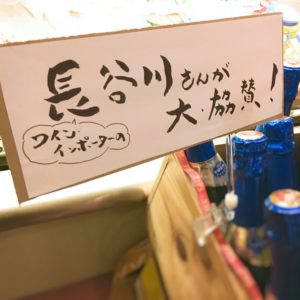 長谷川さんが
ワイン
インポーターの
大・協賛！